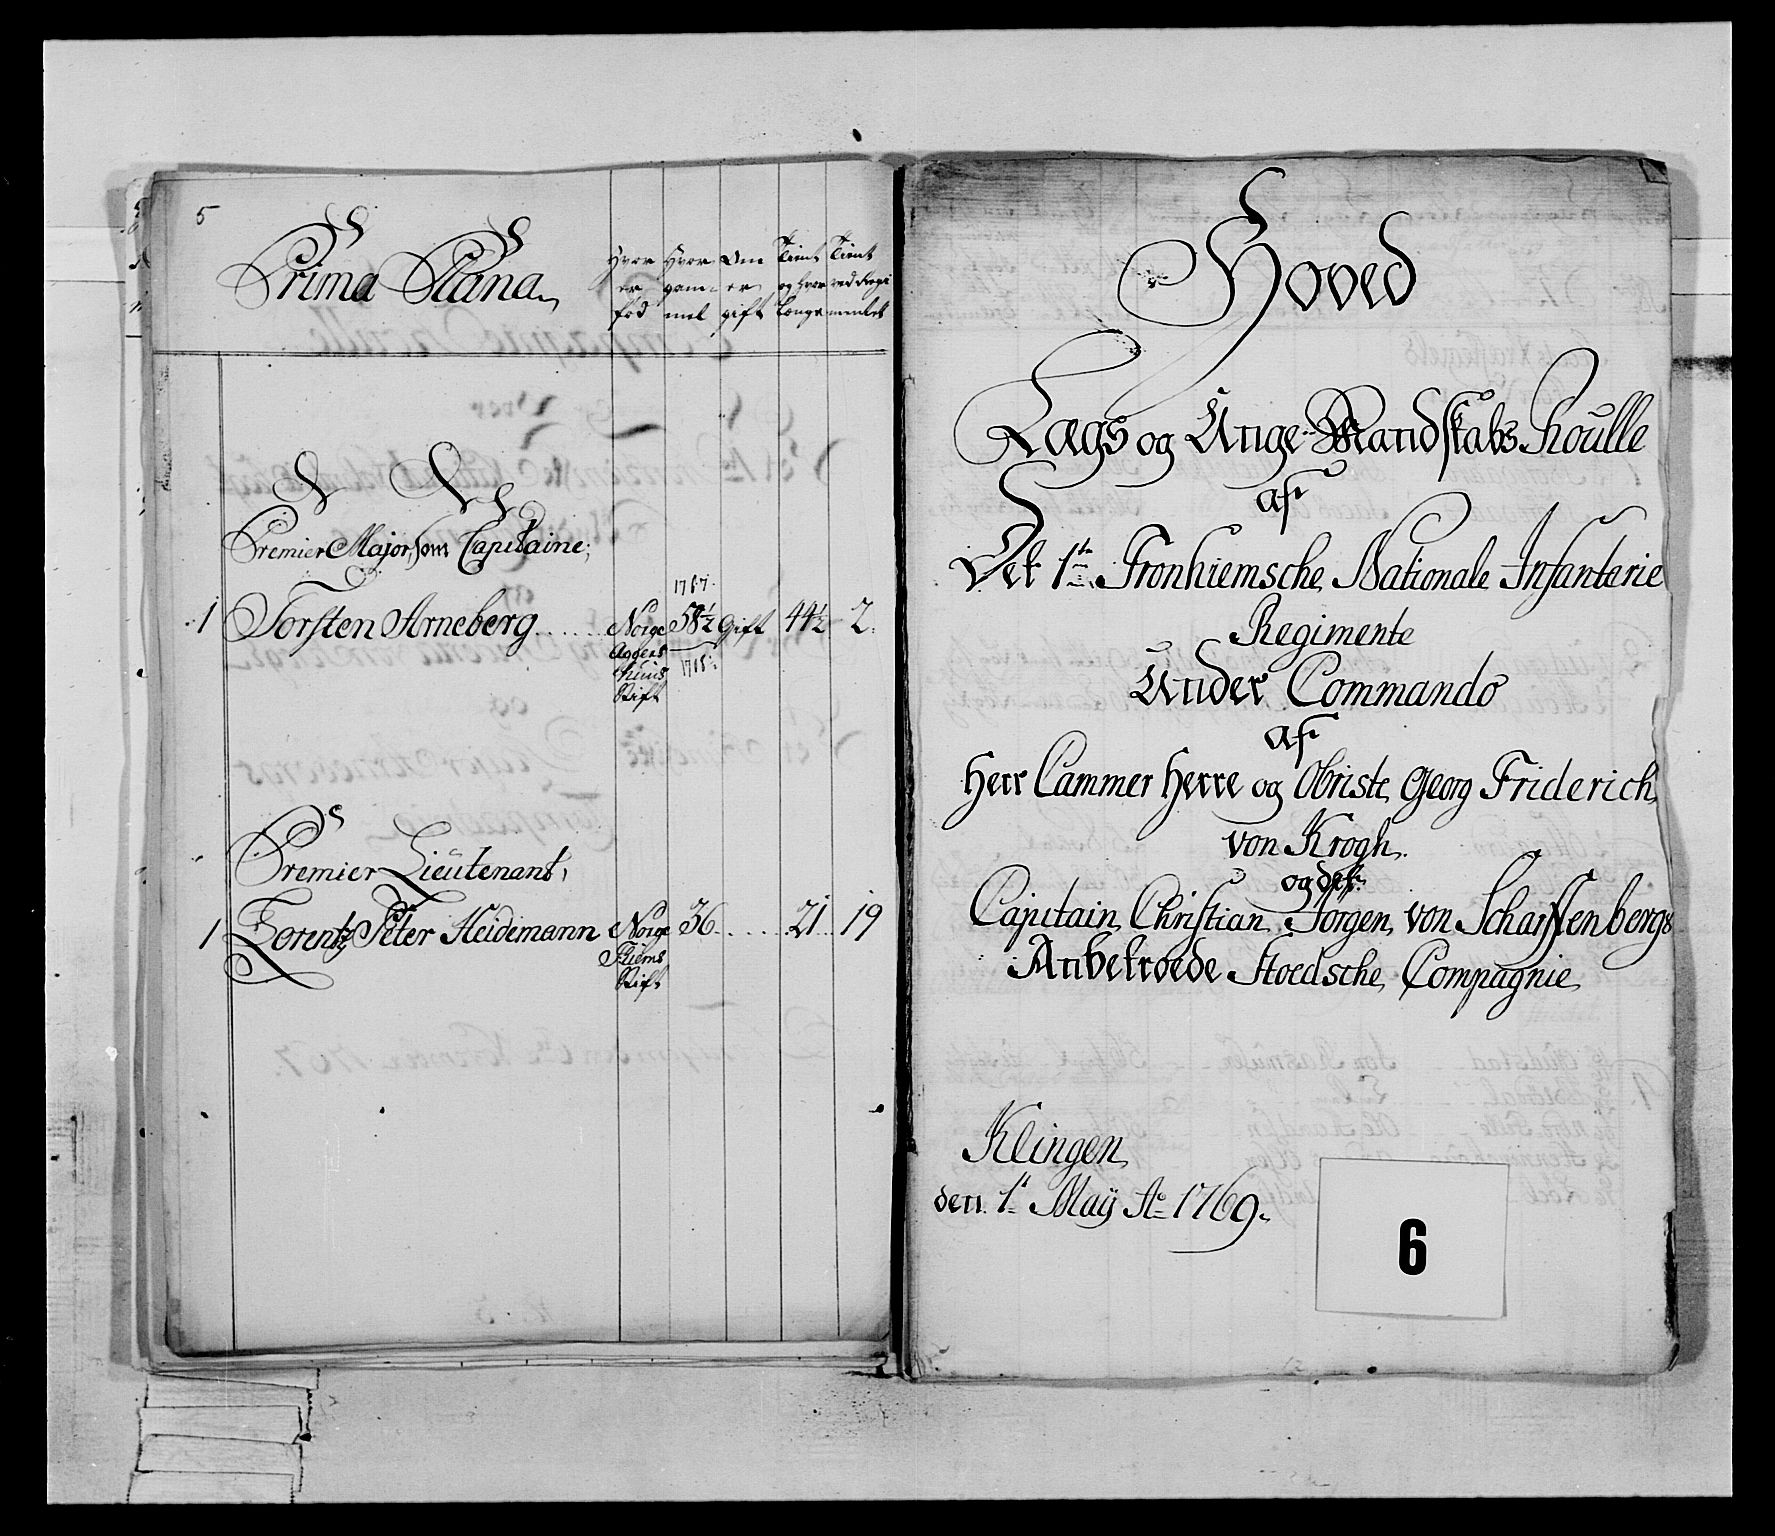 5
Prima Plana
Hvor er fød
Hvor gam= mel
Om er gift
Tient og hvor Længe
Tient ved Regi mentet
Premier Major, som Capitaine;
1767.
1 Torsten Arneberg...... Norge 58½ Gift 44½ 2.
Aggers
huus
Stift
Premier Lieutenant,
1 Lorentz Peter Heidemann Norge 36..... 21.. 19
Thiems
Stift
Hoved
Lægs og Unge-Mandskabs Roulle
af
Det 1te Tronhiemsche Nationale Infanterie
Regimente
Under Commando
af
Herr Cammer Herre og Obriste Georg Friderich
von Krogh.
og det
Capitain Christian Jörgen von Schaffenbergs
Anbetroede Stoedsche Compagnie
Klingen
den 1t Maÿ Ao 1769.
6